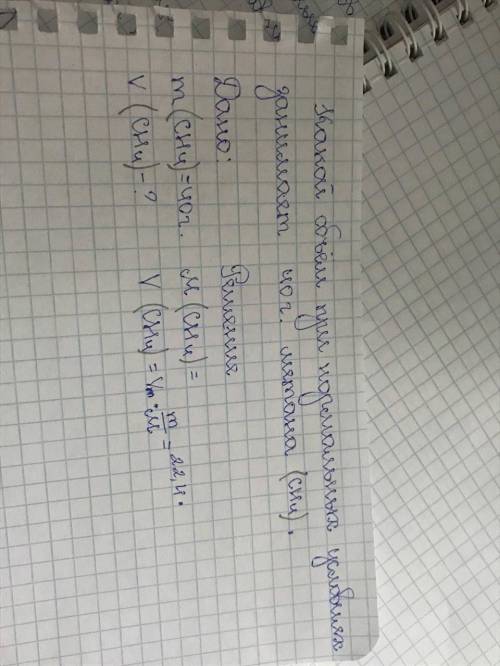 Какой объём при нормальных условиях
занимает 40г. метана (CH4).
Дано: Решения
m (CH4)=40г. M (CH4)=
V (CH4)-? V (CH4)=Vm•m/M=22,4•